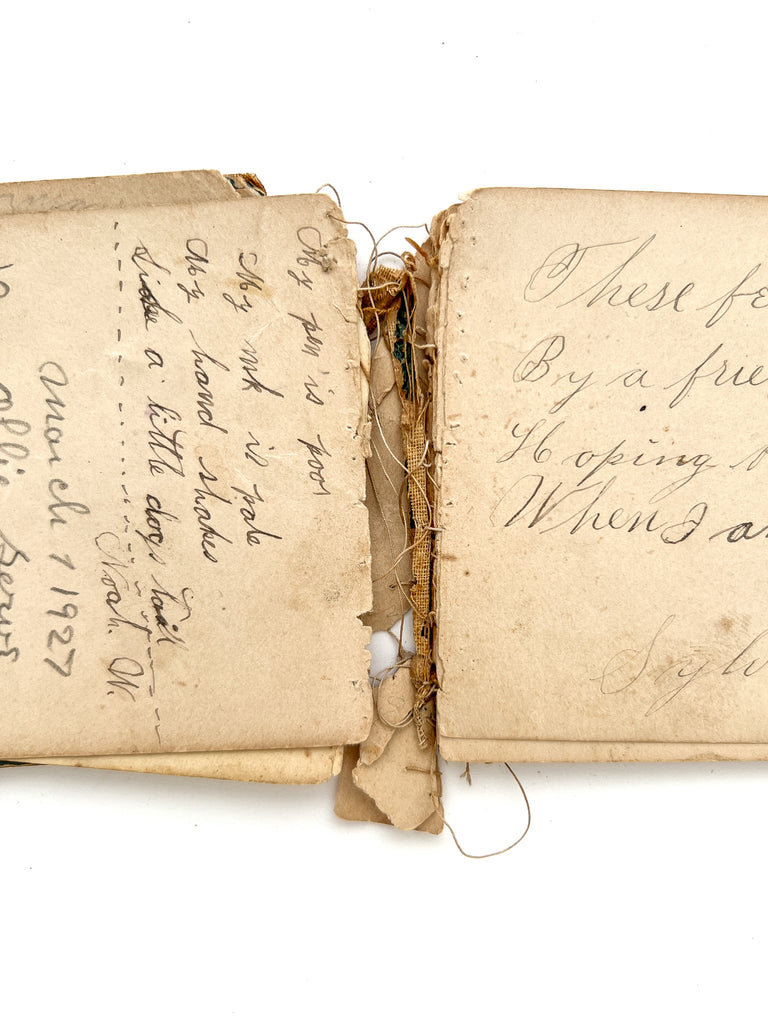 My pen is poor
My ink is pale
My hand shakes
Like a little dogs tail
Noah. W.
March 1 1927
These fe
By a frie
Hoping
When I a
Sylv